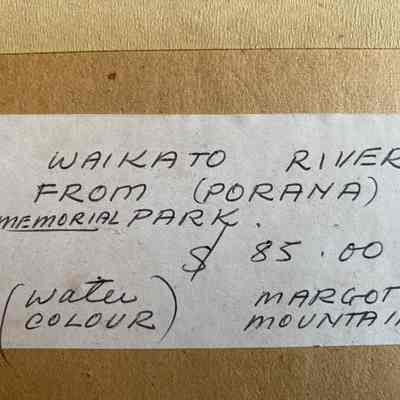 WAIKATO RIVER
FROM (PORANA)
MEMORIAL PARK.
$ 85.00
(Water COLOUR)
MARGOT
MOUNTAI